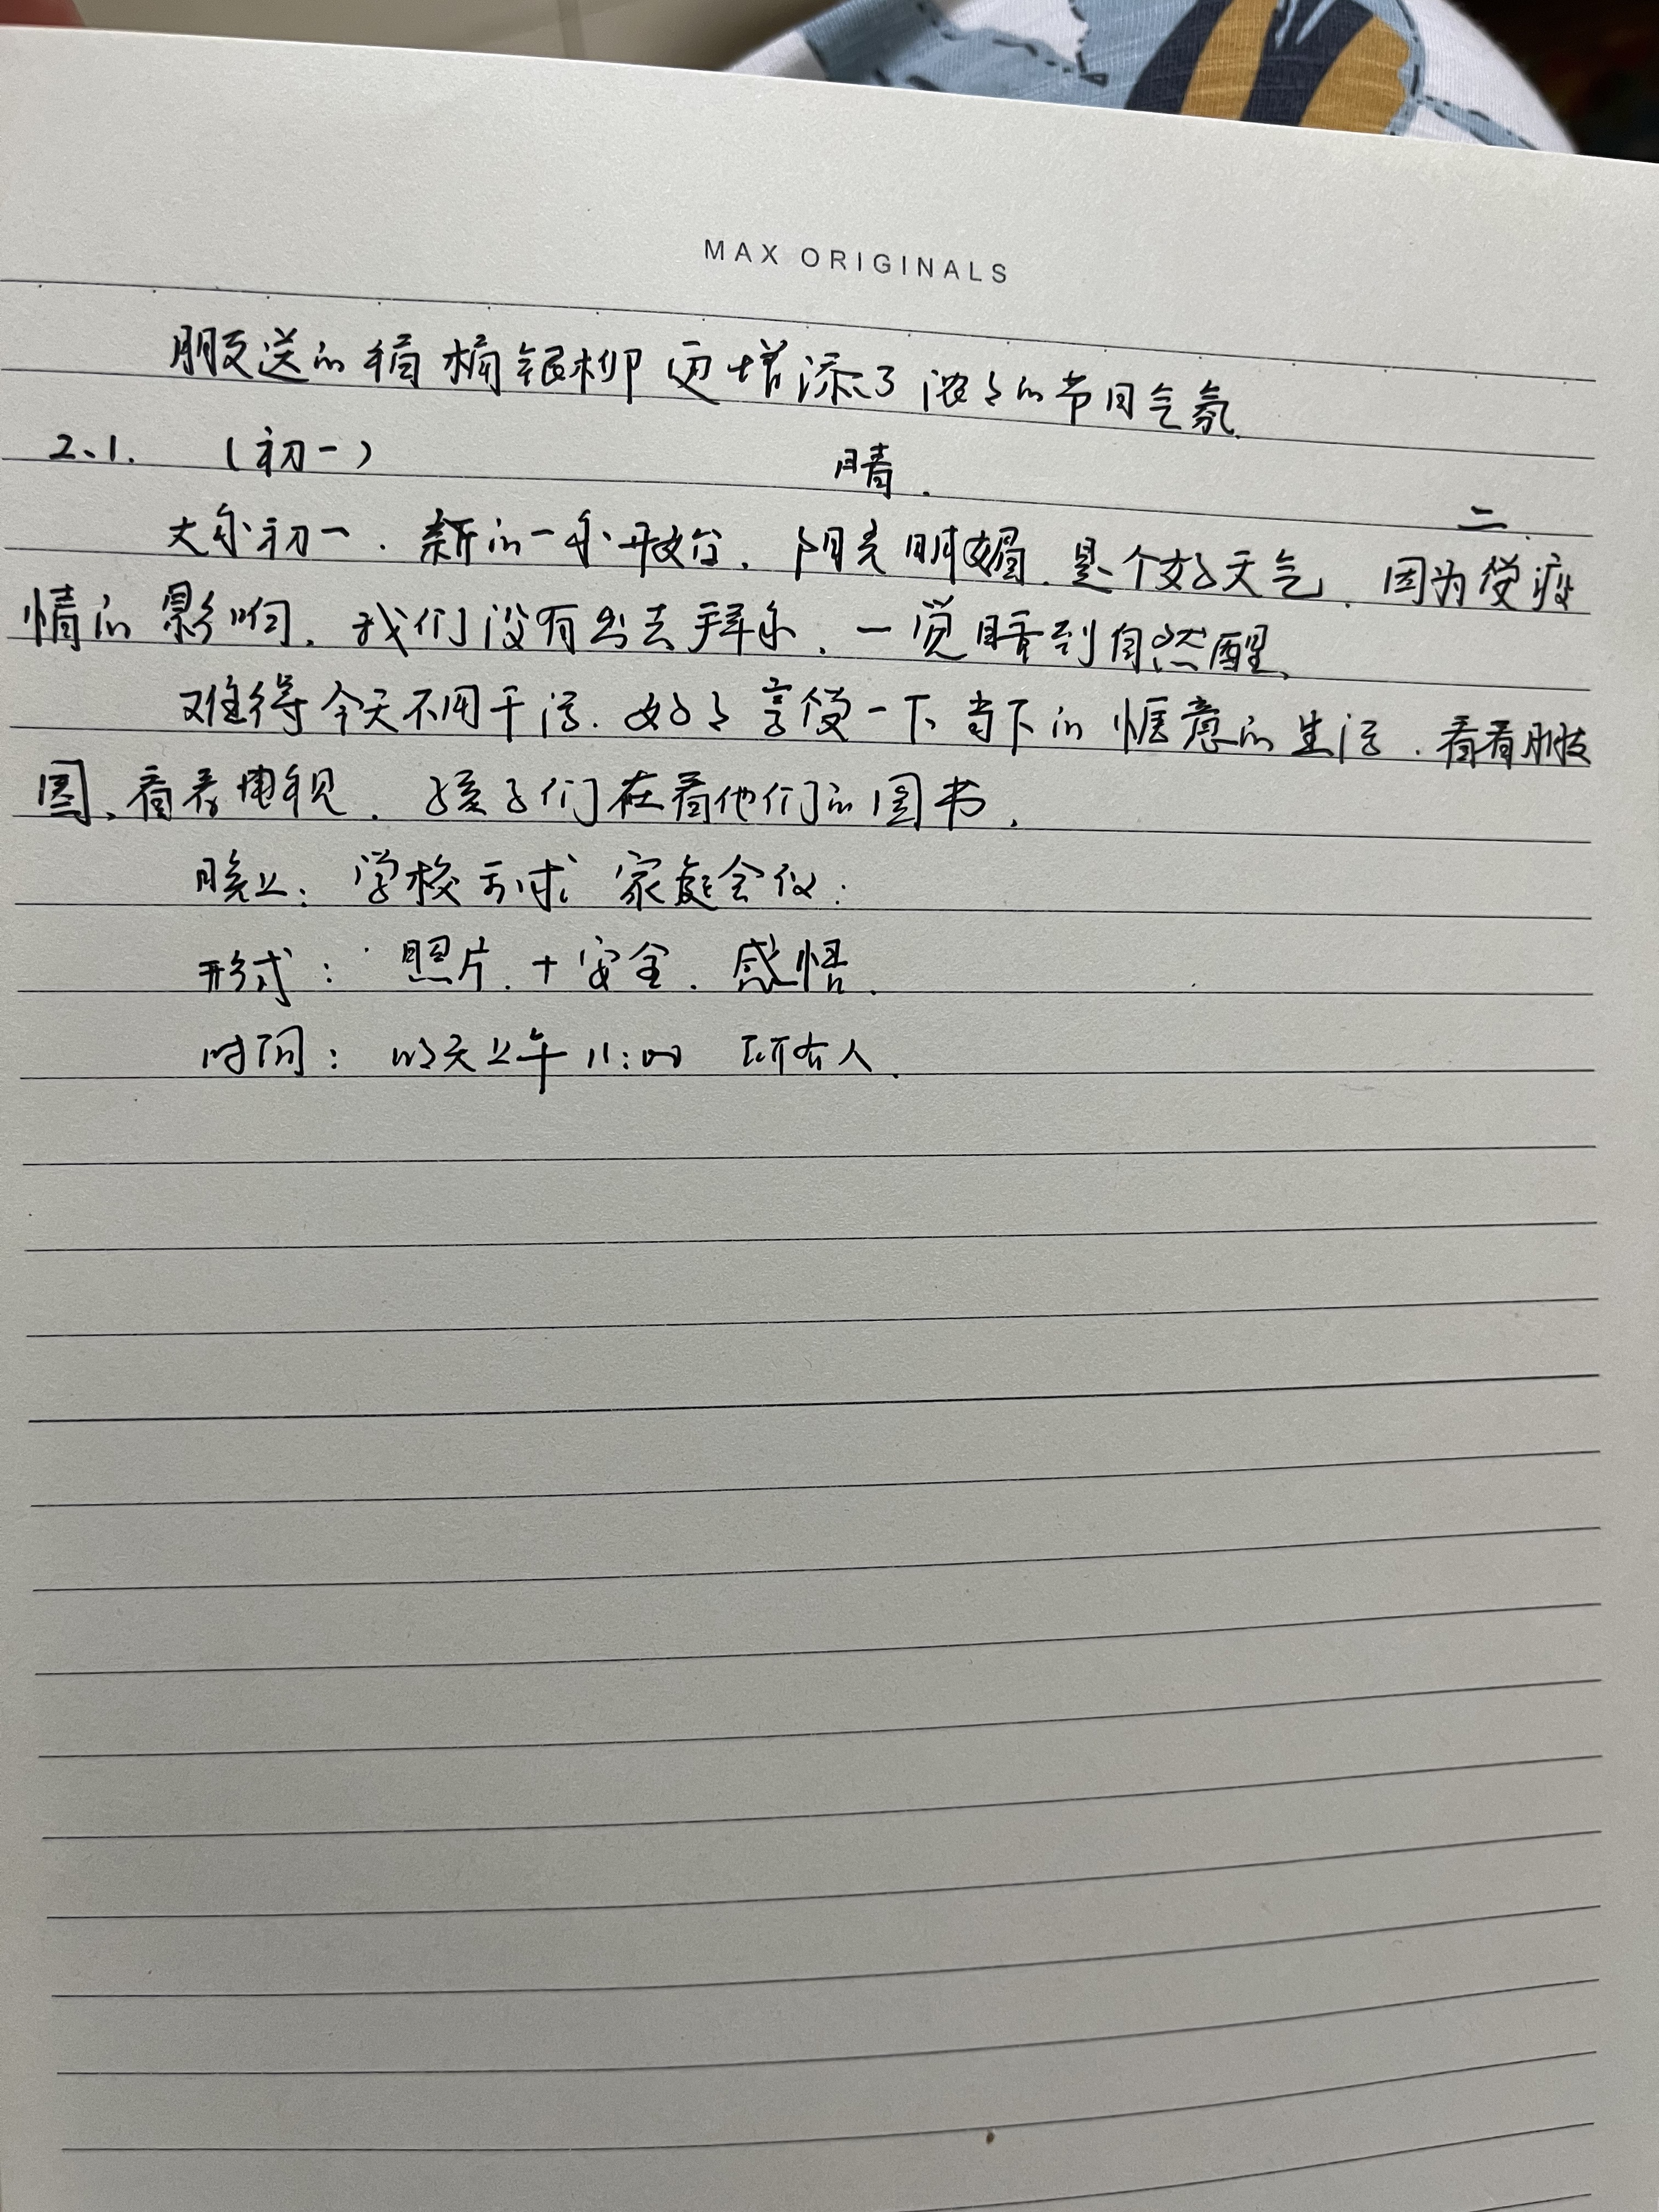 MAX ORIGINALS
朋友送的 银柳更增添了浓々的节日气氛.
2、1. (初一) 晴. 二.
大年初一.新的一年开始.阳光明媚.是个好天气.因为受疫
情的影响.我们没有出去拜年.一觉睡到自然醒、
难得今天不用干活.好々享受一下当下的惬意的生活.看看朋友
圈、看看电视.孩子们在看他们的图书.
晚上:学校 家庭会议:
形式:照片.+安全.感悟.
时间:明天上午11:00 所有人.